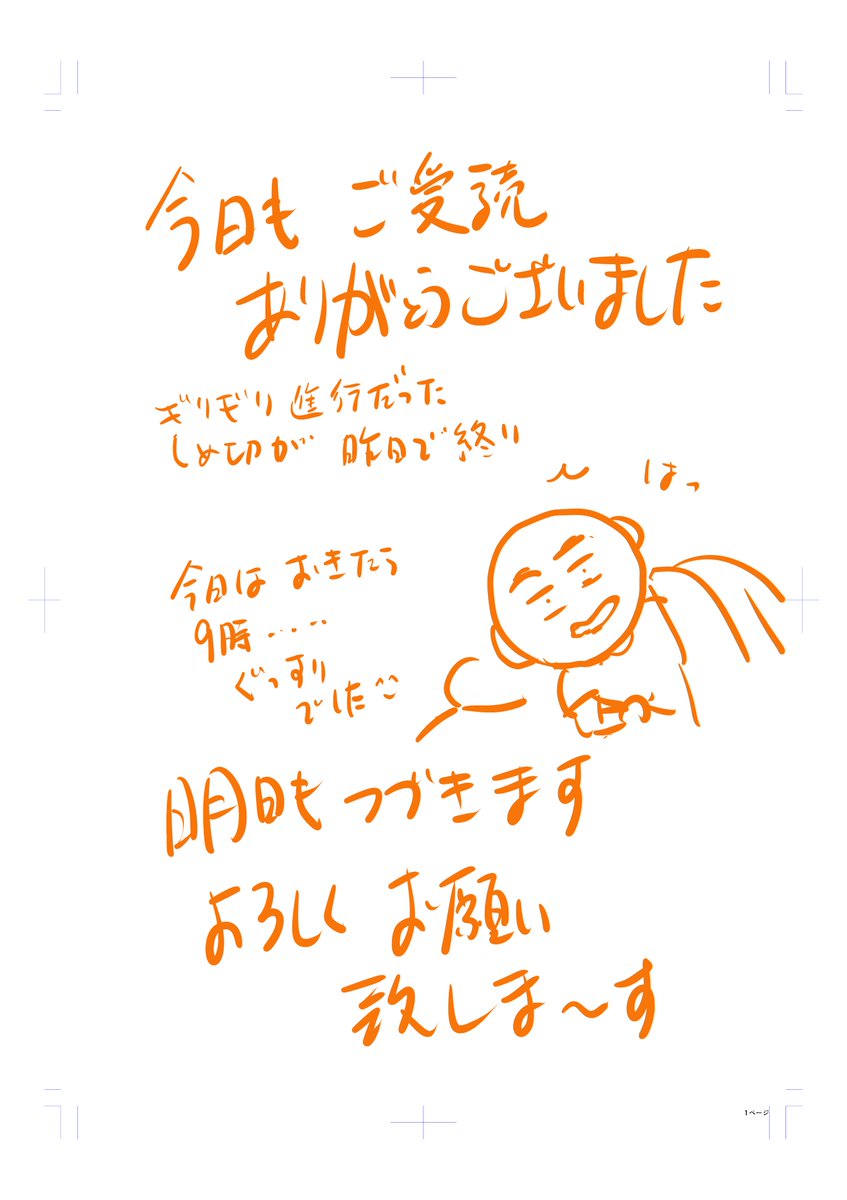 今日も ご受読
ありがとうございました
ギリギリ 進行だった
しめ切が 昨日で終り
はっ
今日は おきたら
9時‥‥
ぐっすり
でした^^
明日も つづきます
よろしく お願い
致しま〜す
1ページ